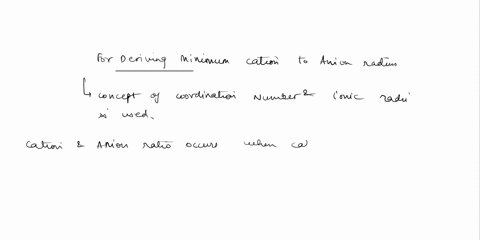 For Deriving Minimum cation to Anion radius
concept of coordination Number & ionic radii
is used.
Cation & Anion ratio occurs when ca